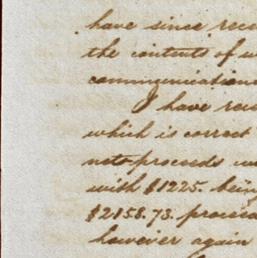 have since rece
the contents of w
communications
I have rece
which is correct
nett proceeds w
with $1225. bein
$2158.73. procee
however again